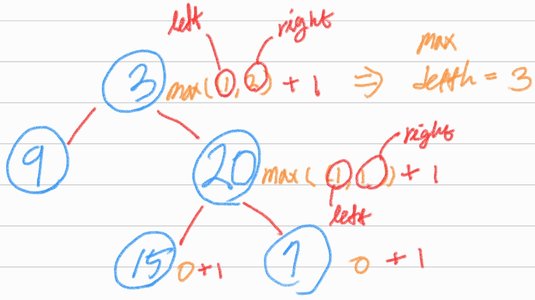 left right
3 max(1, 2) + 1 ⇒ max depth = 3
9 20 max(1, 1) + 1 right
left
15 0+1 7 0 + 1